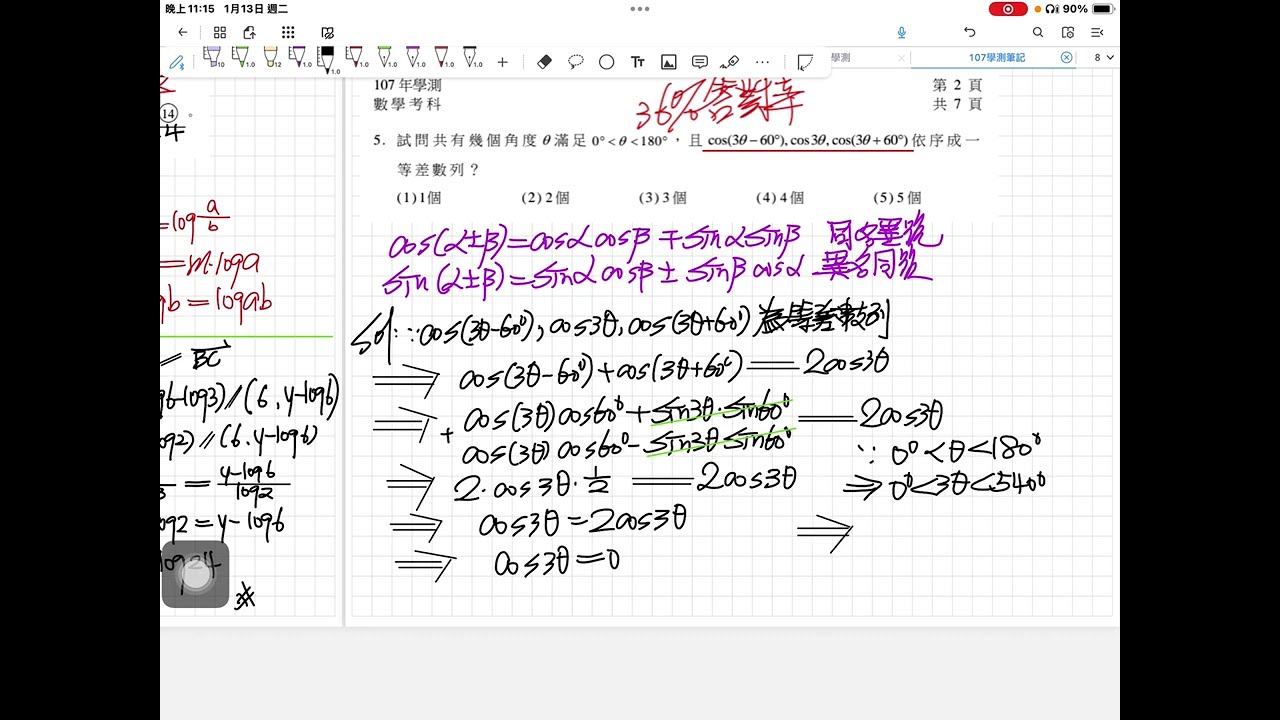 晚上11:15 1月13日 週二
90%
學測
107學測筆記
8
107年學測
數學考科
36%答對率
第 2 頁
共 7 頁
5. 試問共有幾個角度 θ 滿足 0°<θ<180°,且 cos(3θ−60°), cos3θ, cos(3θ+60°) 依序成一
等差數列?
(1) 1個 (2) 2個 (3) 3個 (4) 4個 (5) 5個
14
cos(α±β)=cosαcosβ∓sinαsinβ 同名異號
sin(α±β)=sinαcosβ±sinβcosα 異名同號
sol ∵cos(3θ-60°), cos3θ, cos(3θ+60°) 為等差數列
⇒ cos(3θ-60°)+cos(3θ+60°)=2cos3θ
⇒ cos(3θ)cos60°+sin3θ·sin60° = 2cos3θ
+ cos(3θ)cos60°-sin3θsin60°
⇒ 2·cos3θ·1/2 = 2cos3θ
⇒ cos3θ=2cos3θ
⇒ cos3θ=0
∵ 0°<θ<180°
⇒ 0°<3θ<540°
⇒
=log a/b
=m·loga
=logab
// BC
//(6, y-log6)
//(6, y-log6)
= y-log6/log2
=y-log6